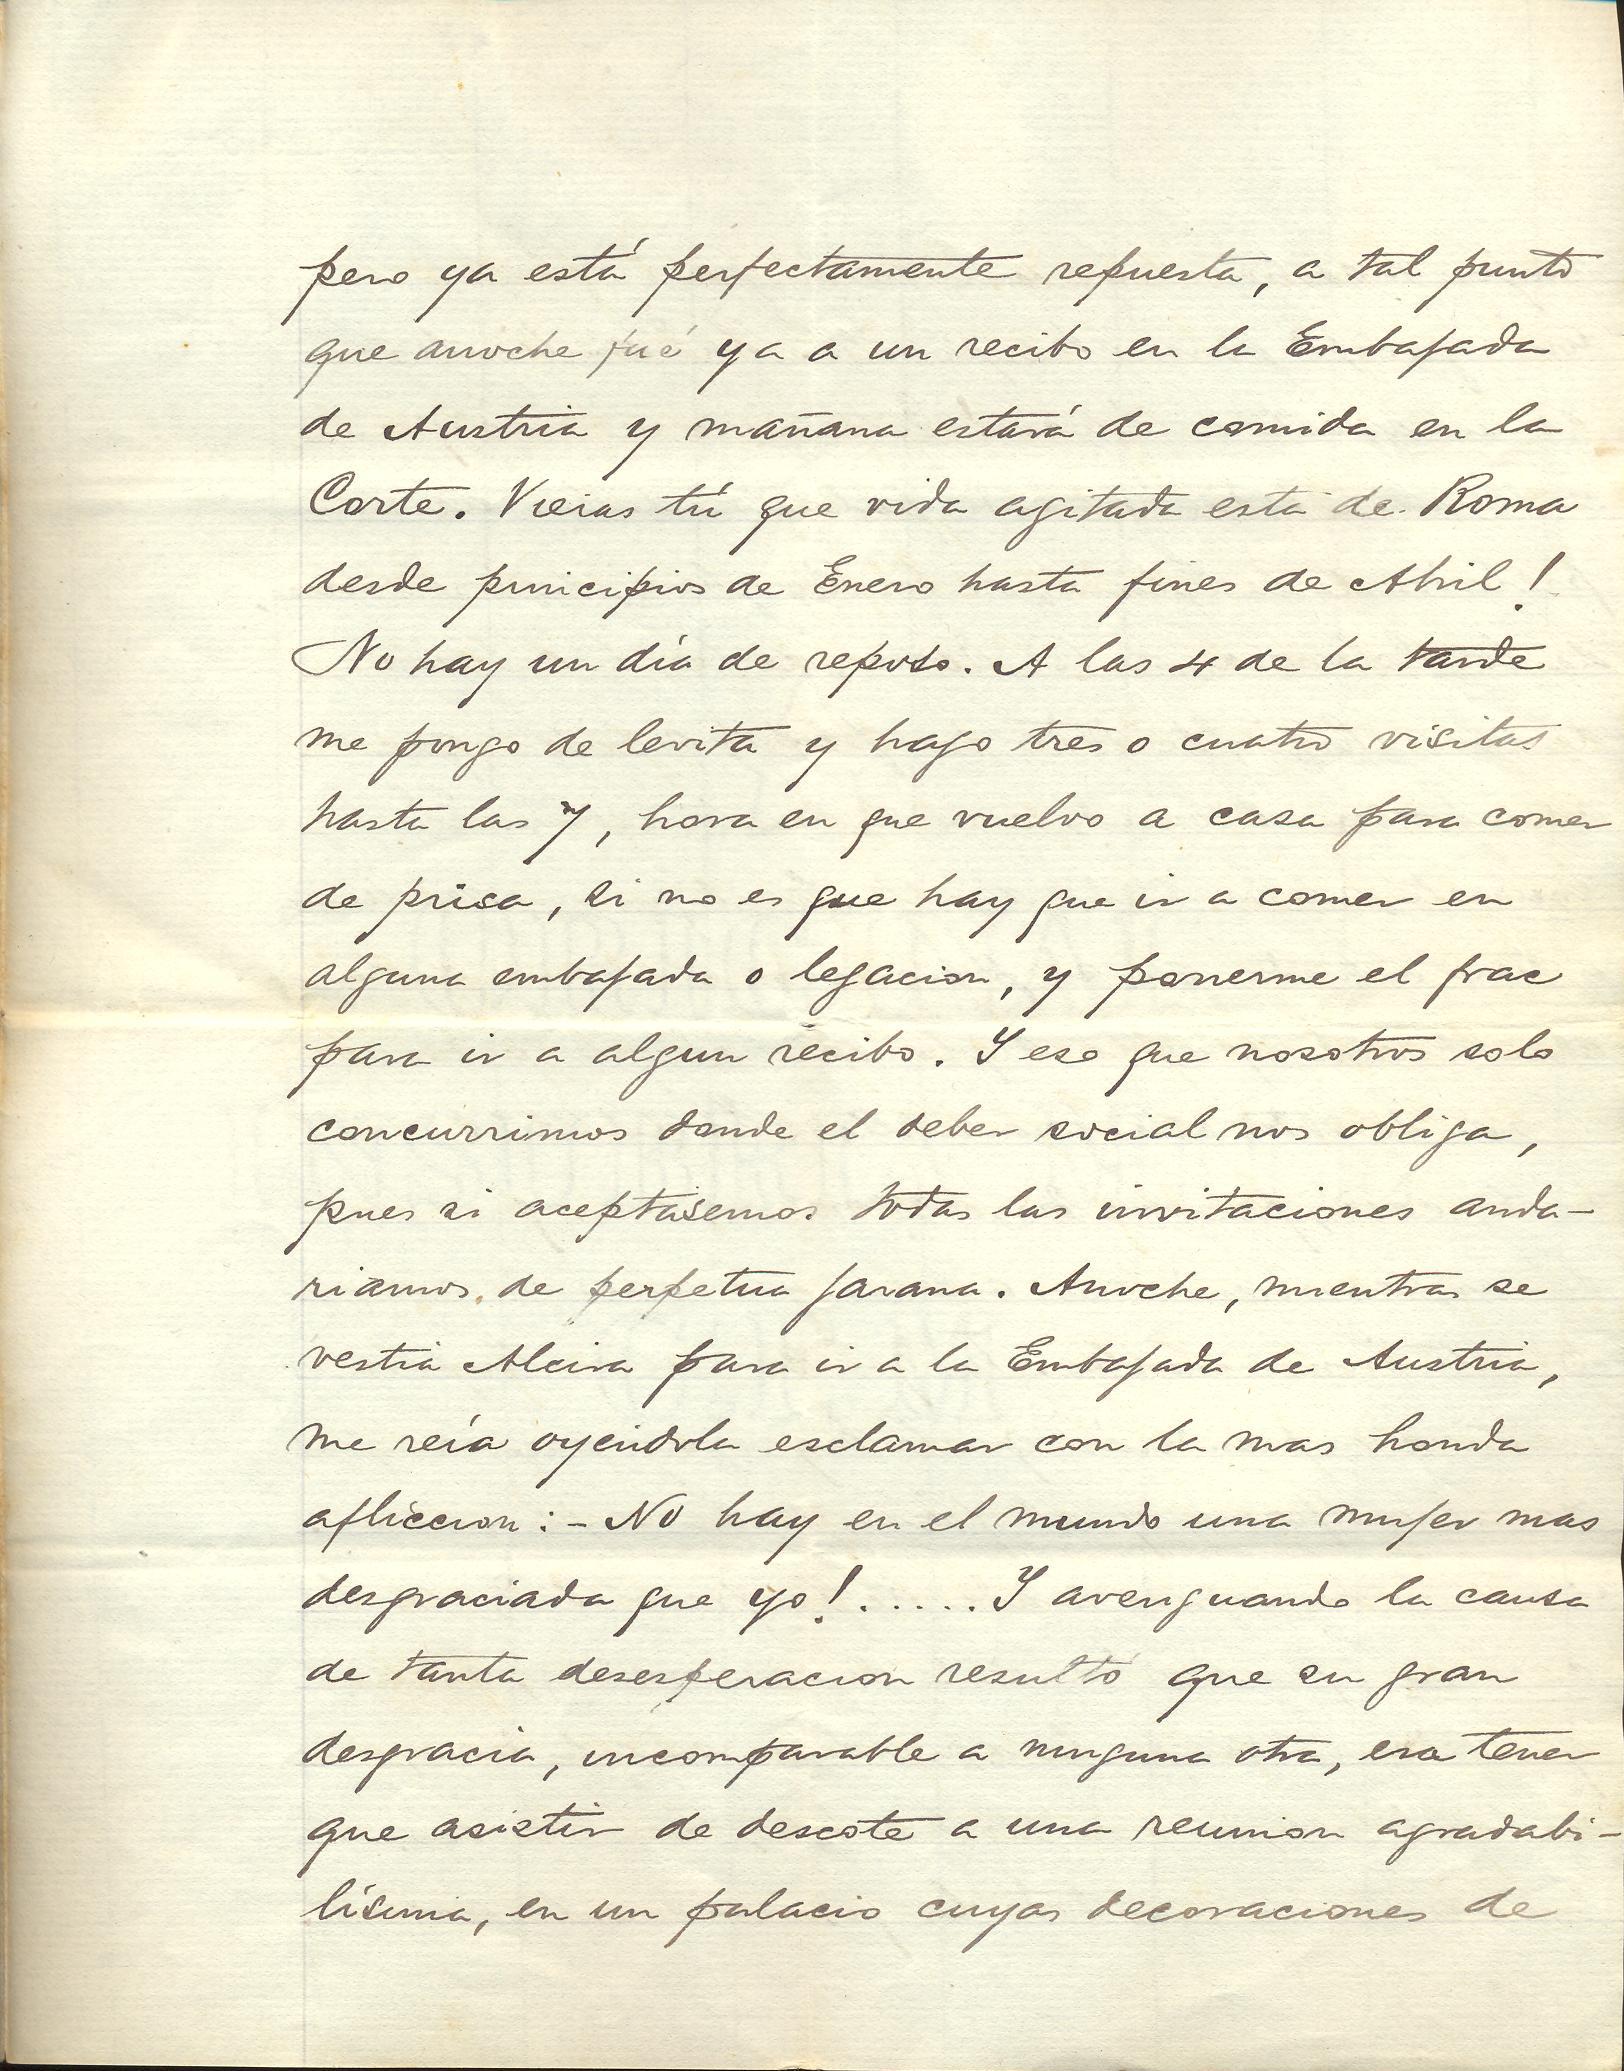 pero ya está perfectamente repuesta, a tal punto
que anoche fué ya a un recibo en la Embajada
de Austria y mañana estará de comida en la
Corte. Vieras tú que vida agitada esta de Roma
desde principios de Enero hasta fines de Abril!
No hay un día de reposo. A las 4 de la tarde
me pongo de levita y hago tres o cuatro visitas
hasta las 7, hora en que vuelvo a casa para comer
de prisa, si no es que hay que ir a comer en
alguna embajada o legacion, y ponerme el frac
para ir a algun recibo. Y eso que nosotros solo
concurrimos donde el deber social nos obliga,
pues si aceptásemos todas las invitaciones anda-
riamos de perpetua jarana. Anoche, mientras se
vestía Alcira para ir a la Embajada de Austria,
me reía oyéndola esclamar con la mas honda
afliccion: - No hay en el mundo una mujer mas
desgraciada que yo!..... Y averiguando la causa
de tanta desesperacion resultó que su gran
desgracia, incomparable a ninguna otra, era tener
que asistir de descote a una reunion agradabi-
lísima, en un palacio cuyas decoraciones de